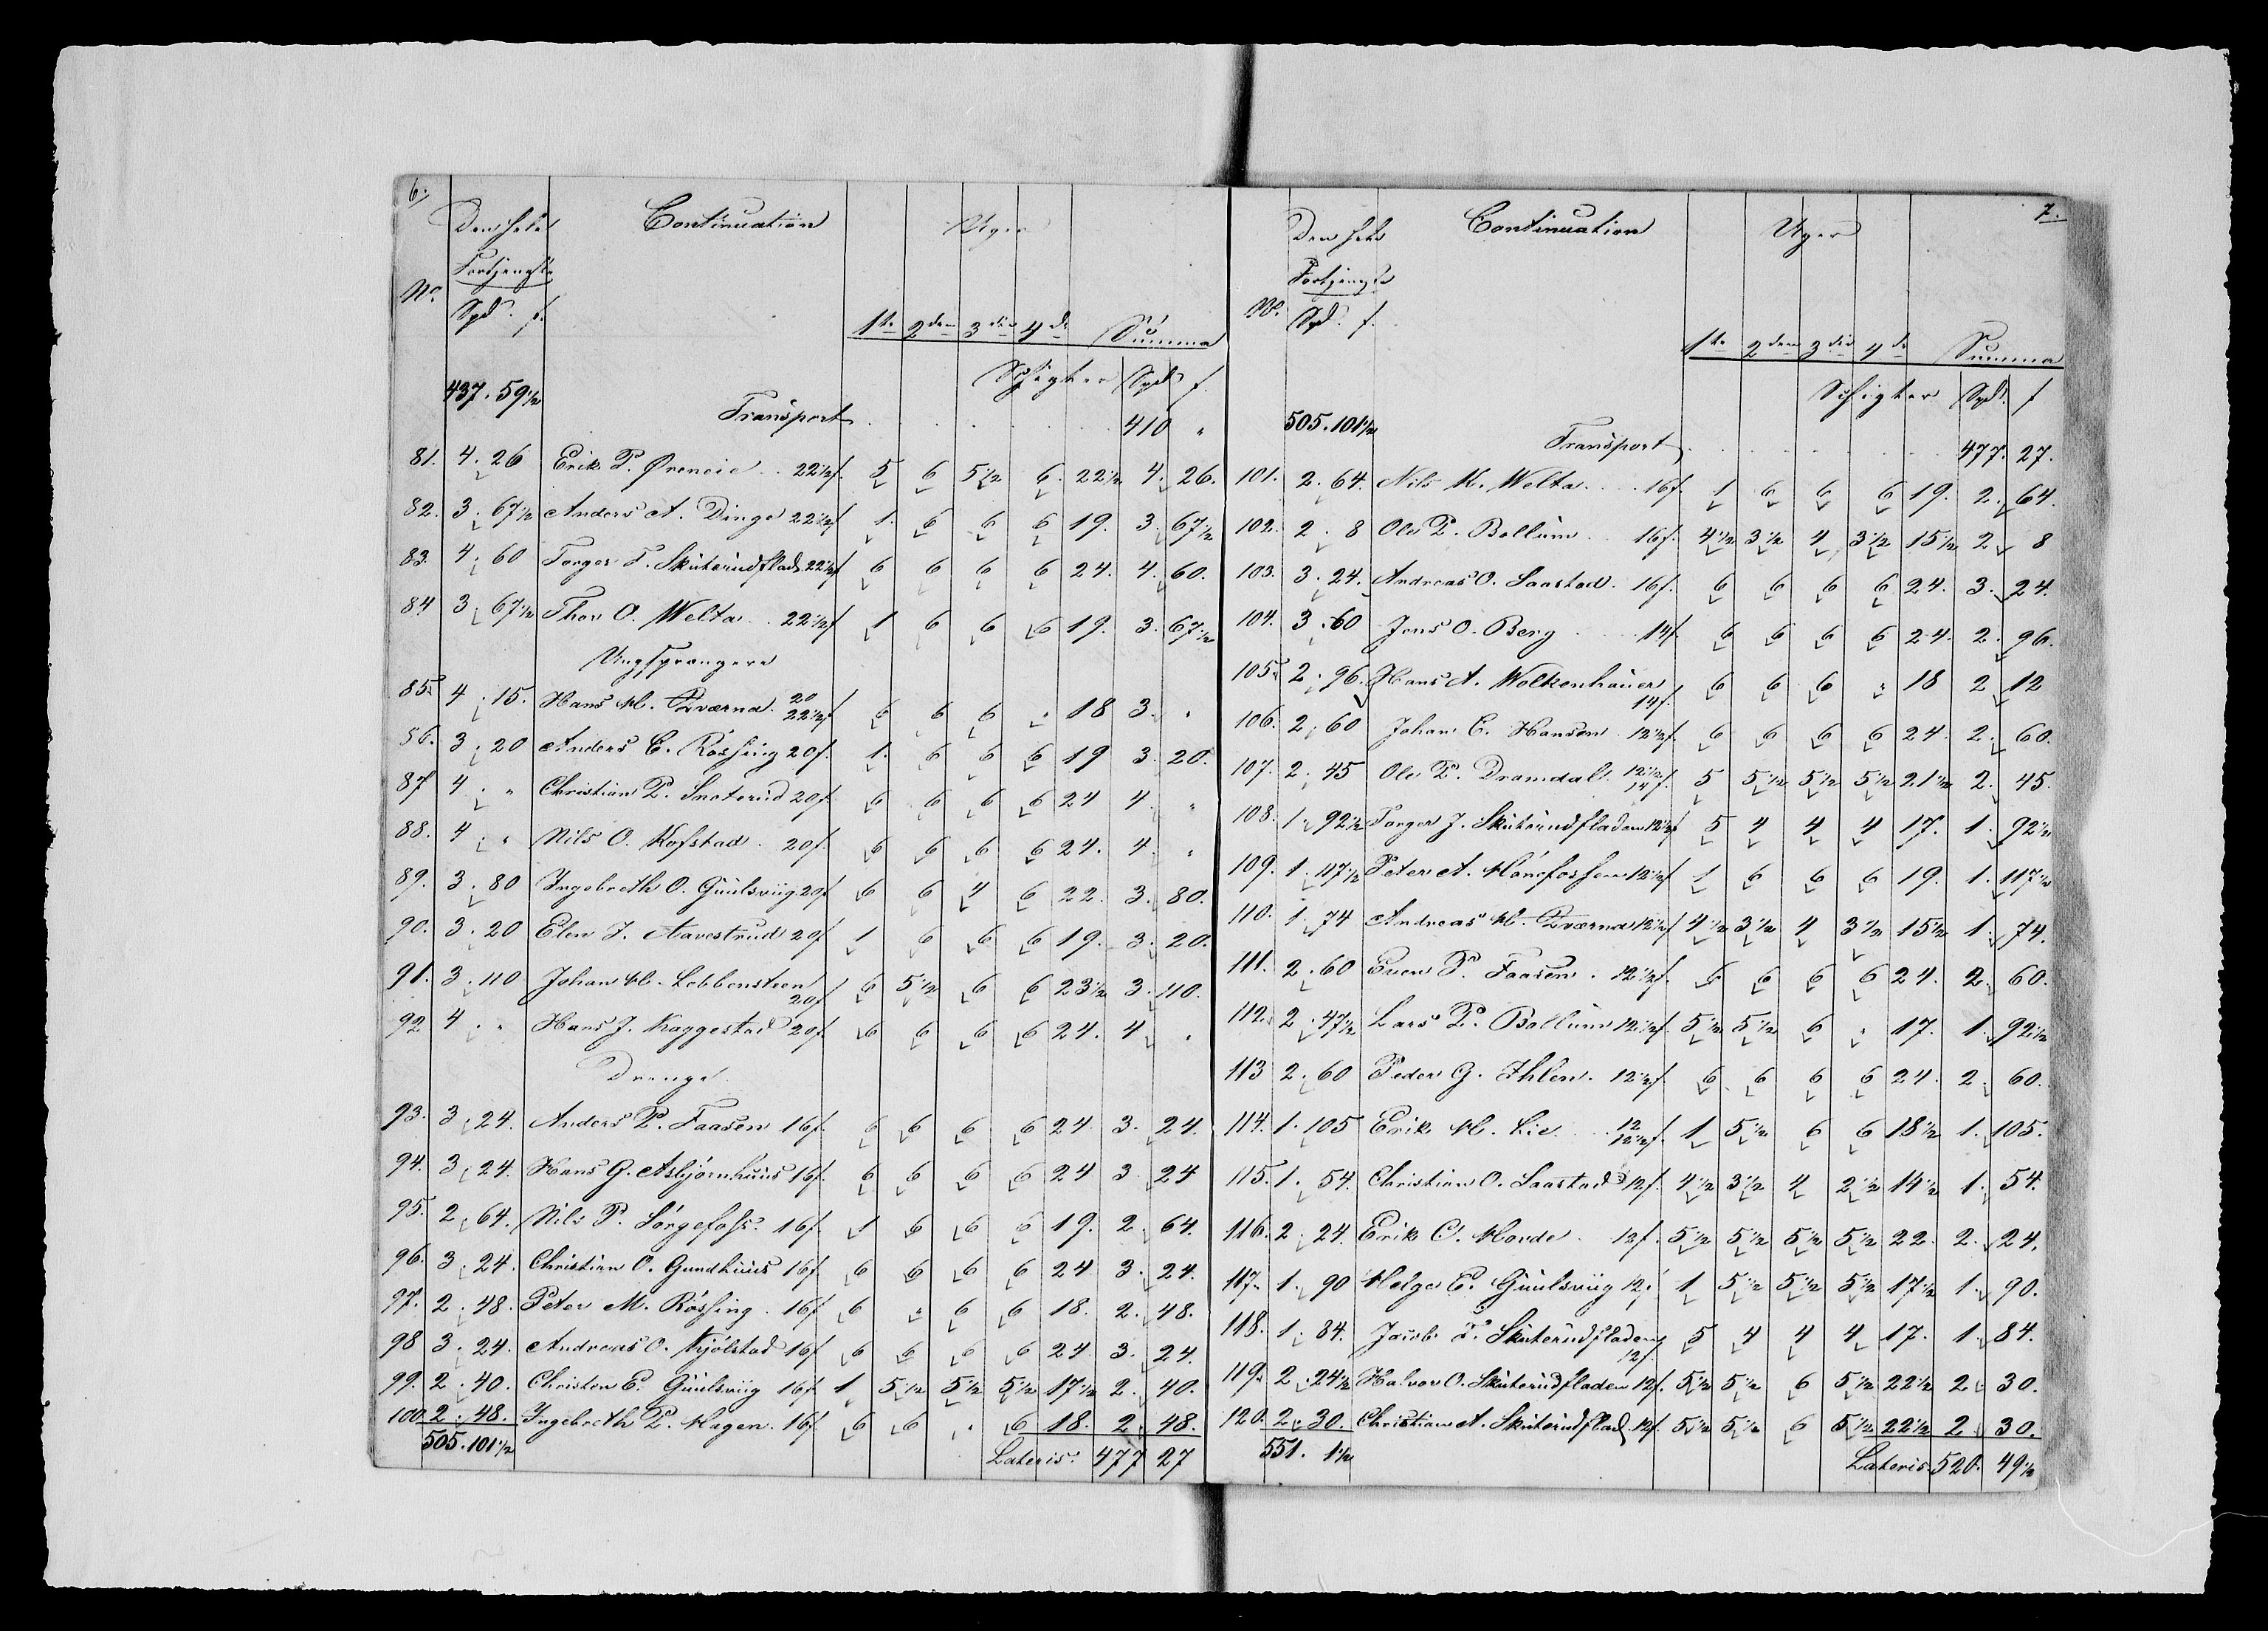 6.
Den hele Continuation Uger
Fortjeneste
No. Spd. f.
1te 2den 3die 4de Summa
Schigter Spd. f.
437. 59 1/2 Transport 410 "
81. 4. 26 Erik P. Øreneie 22 1/2 f. 5 6 5 1/2 6 22 1/2 4. 26.
82. 3. 67 1/2 Anders A. Dinge 22 1/2 f 1. 6 6 6 19. 3. 67 1/2
83. 4. 60 Torger T. Skuterudflad. 22 1/2 f 6 6 6 6 24. 4. 60.
84 3. 67 1/2 Thor O. Welta 22 1/2 f 1 6 6 6 19. 3. 67 1/2
85. 4. 15. Hans H. Qværna 20 22 1/2 f 6 6 6 " 18 3. "
56. 3. 20 Anders C. Røssing 20 f. 1. 6 6 6 19 3. 20.
87 4. " Christian P. Snoterud 20 f. 6 6 6 6 24 4. "
88. 4. " Nils O. Kofstad 20 f. 6 6 6 6 24. 4. "
89. 3. 80 Ingebreth O. Guulsviig 20 f 6 6 4 6 22. 3. 80.
90. 3. 20 Elen J. Aavestrud 20 f 1 6 6 6 19. 3. 20.
91. 3. 110 Johan H. Lobbensteen 20 f 6 5 1/2 6 6 23 1/2 3. 110.
92 4. " Hans J. Kaggestad 20 f. 6 6 6 6 24. 4. "
Drenge
93. 3. 24. Anders P. Faasen 16 f. 6 6 6 6 24 3. 24.
94. 3. 24. Hans G. Asbjørnhuus 16 f. 6 6 6 6 24 3. 24
95. 2. 64. Nils P. Sørgefoss. 16 f. 1 6 6 6 19. 2. 64.
96. 3. 24. Christian O. Gundhuus 16 f. 6 6 6 6 24 3. 24.
97. 2. 48. Peter M. Røssing. 16 f 6 " 6 6 18. 2. 48.
98 3. 24. Andreas O. Kjølstad 16 f 6 6 6 6 24 3. 24.
99. 2. 40. Christen E. Guulsviig 16 f. 1 5 1/2 5 1/2 5 1/2 17 1/2 2. 40.
100. 2. 48. Ingebreth P. Hagen. 16 f. 6 6 " 6 18. 2. 48.
505. 101 1/2 Lateris. 477 27
7.
Den hele Continuation Uger
Fortjeneste
No. Spd. f.
1te 2den 3die 4de Summa
Schigter Spd. f
505. 101 1/2 Transport 477. 27.
101. 2. 64. Nils K. Welta 16 f. 1 6 6 6 19. 2. 64.
102. 2. 8 Ole P. Bollum 16 f. 4 1/2 3 1/2 4 3 1/2 15 1/2 2. 8
103. 3. 24. Andreas O. Saastad. 16 f. 6 6 6 6 24. 3. 24.
104. 3. 60 Jens O. Berg 14 f. 6 6 6 6 24. 2. 96.
105. 2. 96. Hans A. Wolkenhauer 14 f. 6 6 6 " 18 2 12
106. 2. 60 Johan C. Hansen 12 1/2 f. 6 6 6 6 24. 2. 60.
107. 2. 45 Ole P. Dramdal. 12 1/2 14 f. 5 5 1/2 5 1/2 5 1/2 21 1/2 2. 45.
108. 1. 92 1/2 Torger J. Skuterudfladen 12 1/2 f 5 4 4 4 17. 1. 92 1/2
109. 1. 117 1/2 Peter A. Hønefossen 12 1/2 f 1 6 6 6 19. 1. 117 1/2
110. 1. 74 Andreas H. Qværna 12 1/2 f 4 1/2 3 1/2 4 3 1/2 15 1/2 1. 74.
111. 2. 60 Even P. Faasen. 12 1/2 f. 6 6 6 6 24. 2. 60.
112. 2. 47 1/2 Lars P. Bollum 12 1/2 f. 5 1/2 5 1/2 6 " 17. 1. 92 1/2
113 2. 60 Peder G. Ihlen. 12 1/2 f. 6 6 6 6 24. 2. 60.
114. 1. 105 Erik H. Lie 12 12 1/2 f. 1 5 1/2 6 6 18 1/2 1. 105.
115. 1. 54. Christian O. Saastad 12 f. 4 1/2 3 1/2 4 2 1/2 14 1/2 1. 54.
116. 2. 24. Erik C. Hovde 12 f. 5 1/2 5 1/2 5 1/2 5 1/2 22. 2. 24.
117. 1. 90 Helge E. Guulsviig 12 f 1 5 1/2 5 1/2 5 1/2 17 1/2 1. 90.
118. 1. 84. Jacob T. Skuterudfladen 12 f. 5 4 4 4 17. 1. 84.
119. 2. 24 1/2 Halvor O. Skuterudfladen 12 f. 5 1/2 5 1/2 6 5 1/2 22 1/2 2 30.
120. 2. 30. Christian A. Skuterudflad. 12 f. 5 1/2 5 1/2 6 5 1/2 22 1/2 2 30.
551. 1 1/2 Lateris. 520. 49 1/2